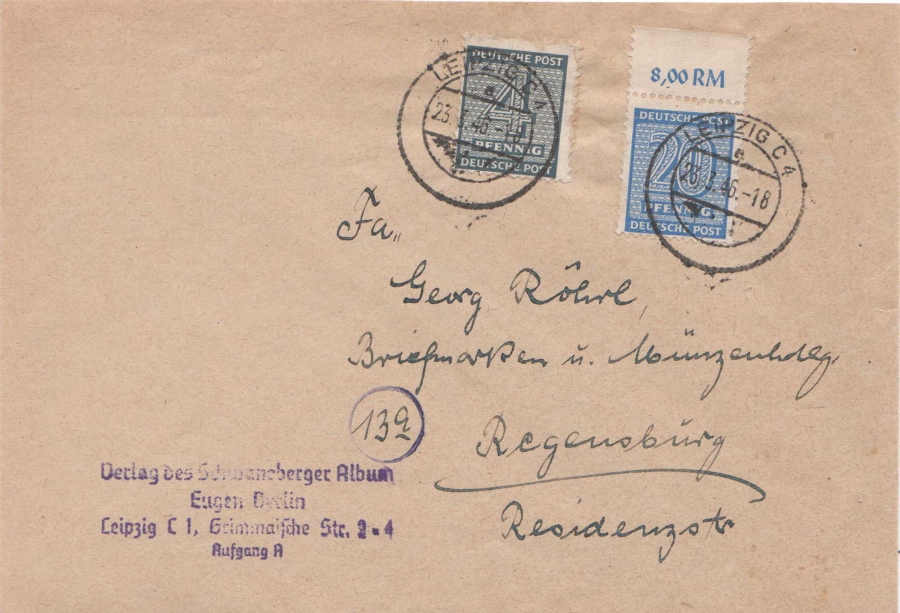 DEUTSCHE POST
4
PFENNIG
DEUTSCHE POST
LEIPZIG C 1
a
23.3.46.-18
8,00 RM
DEUTSCHE POST
20
PFENNIG
DEUTSCHE POST
LEIPZIG C 1
a
23.3.46.-18
Fa.
Georg Röhrl,
Briefmarken u. Münzenhdlg.
13a
Regensburg
Residenzstr
Verlag des Schwaneberger Album
Eugen Berlin
Leipzig C 1, Grimmaische Str. 2-4
Aufgang A